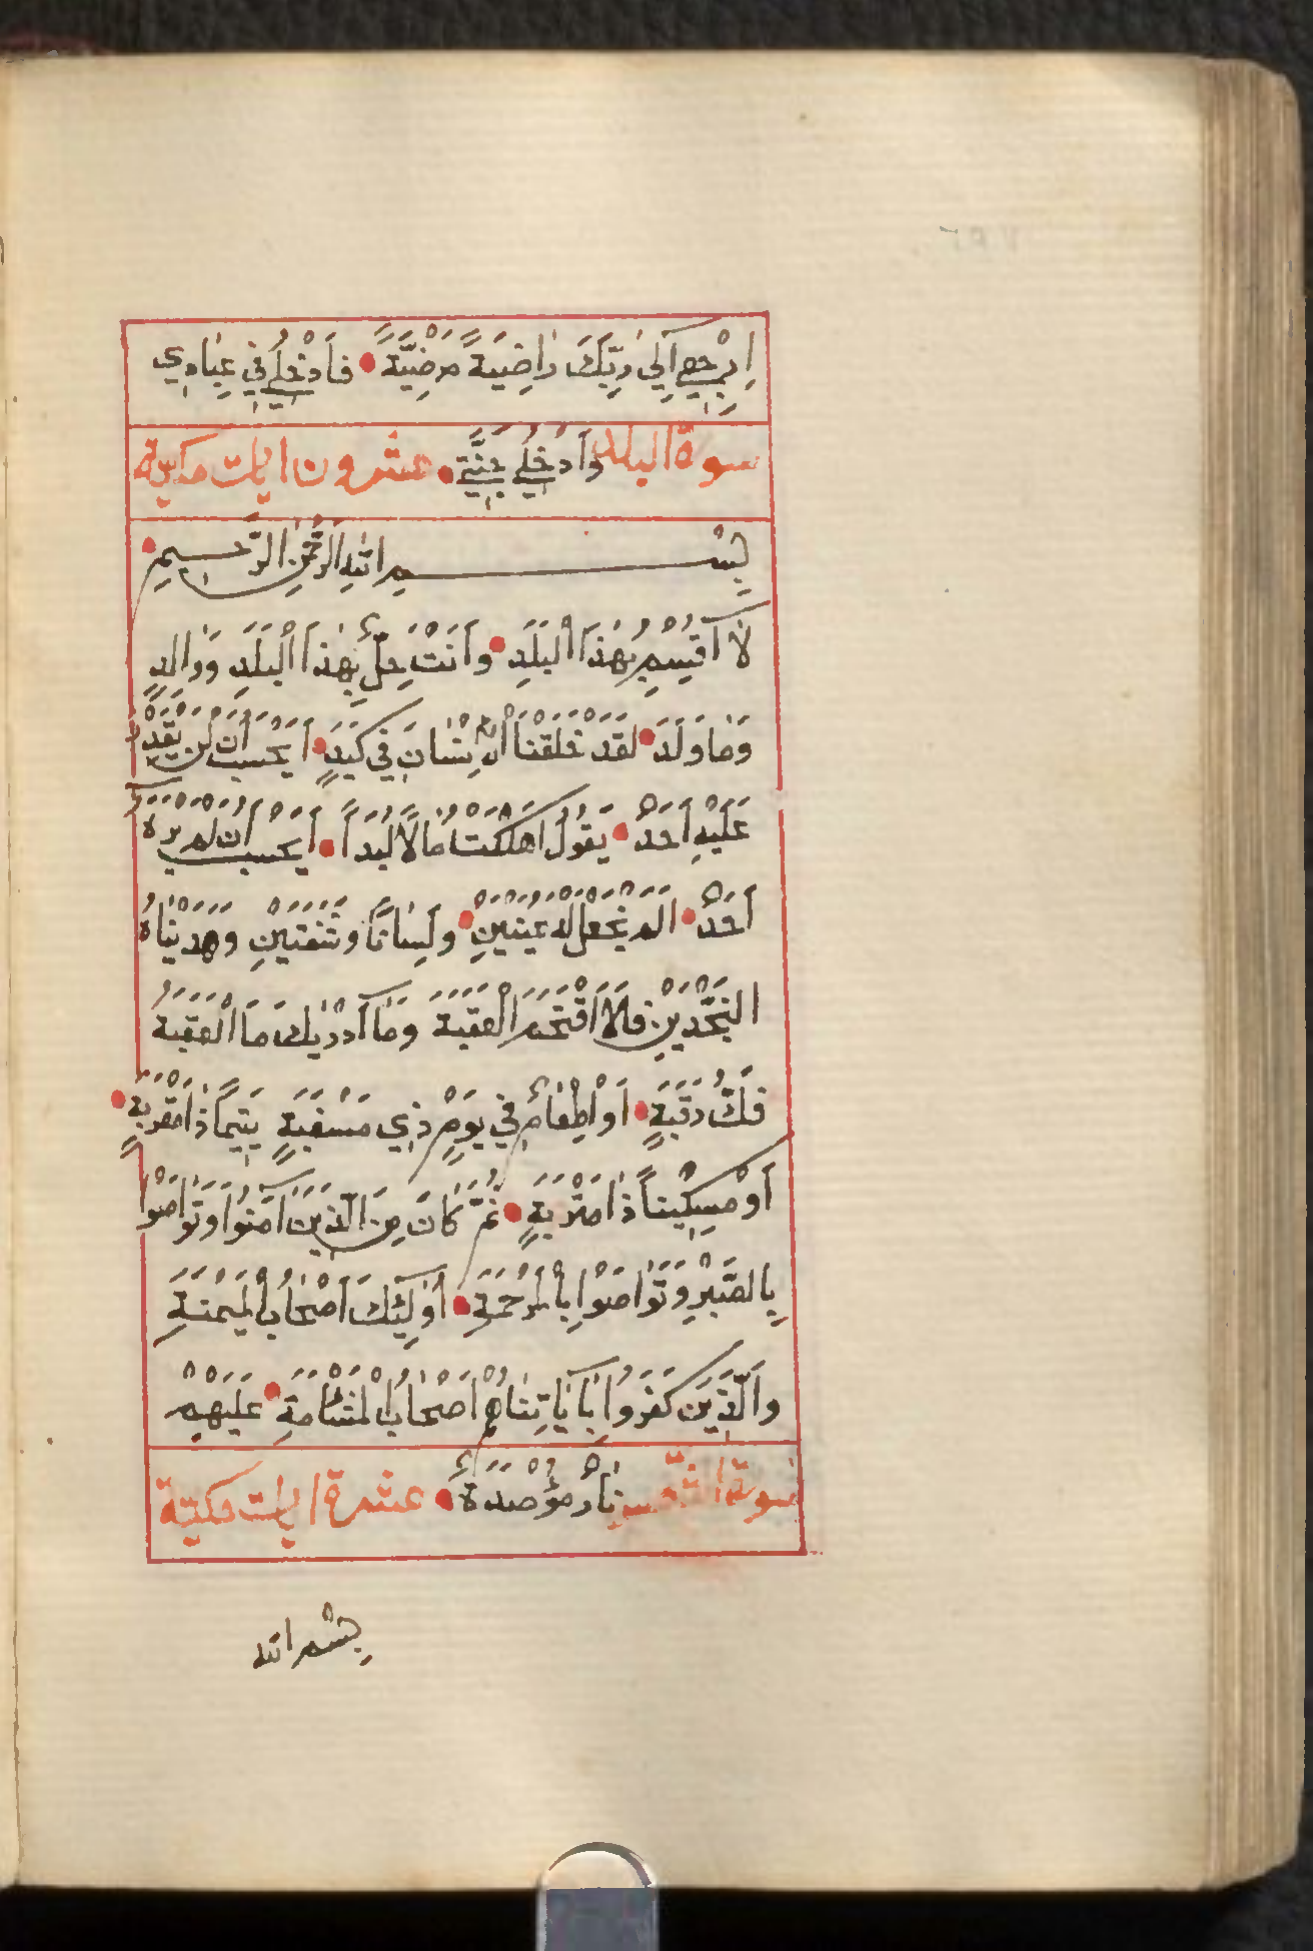 اِرْجِعِي اِلَى رَبِّكَ رَاضِيَةً مَرْضِيَّةً فَادْخُلِي فِي عِبَادِي
سورة البلد وَادْخُلِي جَنَّتِي عشرون ايات مكية
بِسْمِ اللهِ الرَّحْمٰنِ الرَّحِيمِ
لَا اُقْسِمُ بِهٰذَا الْبَلَدِ وَاَنْتَ حِلٌّ بِهٰذَا الْبَلَدِ وَوَالِدٍ
وَمَا وَلَدَ لَقَدْ خَلَقْنَا الْاِنْسَانَ فِي كَبَدٍ اَيَحْسَبُ اَنْ لَنْ يَقْدِرَ
عَلَيْهِ اَحَدٌ يَقُولُ اَهْلَكْتُ مَالًا لُبَدًا اَيَحْسَبُ اَنْ لَمْ يَرَهُ
اَحَدٌ اَلَمْ نَجْعَلْ لَهُ عَيْنَيْنِ وَلِسَانًا وَشَفَتَيْنِ وَهَدَيْنَاهُ
النَّجْدَيْنِ فَلَا اقْتَحَمَ الْعَقَبَةَ وَمَا اَدْرٰيكَ مَا الْعَقَبَةُ
فَكُّ رَقَبَةٍ اَوْ اِطْعَامٌ فِي يَوْمٍ ذِي مَسْغَبَةٍ يَتِيمًا ذَا مَقْرَبَةٍ
اَوْ مِسْكِينًا ذَا مَتْرَبَةٍ ثُمَّ كَانَ مِنَ الَّذِينَ اٰمَنُوا وَتَوَاصَوْا
بِالصَّبْرِ وَتَوَاصَوْا بِالْمَرْحَمَةِ اُولٰئِكَ اَصْحَابُ الْمَيْمَنَةِ
وَالَّذِينَ كَفَرُوا بِاٰيَاتِنَا هُمْ اَصْحَابُ الْمَشْاَمَةِ عَلَيْهِمْ
سورة الشمس نَارٌ مُؤْصَدَةٌ عشرة ايات مكية
بِسْم الله